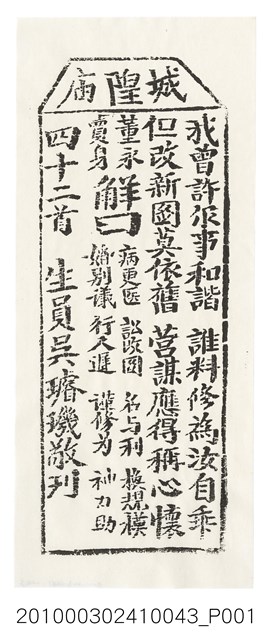 城隍廟
我曾許汝事和諧 誰料修為汝自乖
但改新圖莫依舊 營謀應得稱心懷
董永賣身
解曰
病更医 訟改圖 名与利 換規模
婚别議 行人遲 謹修为 神力助
四十二首 生員吳璿璣敬刊
201000302410043_P001